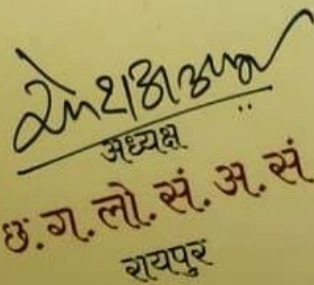 अध्यक्ष
छ.ग.लो.सं.अ.सं
रायपुर